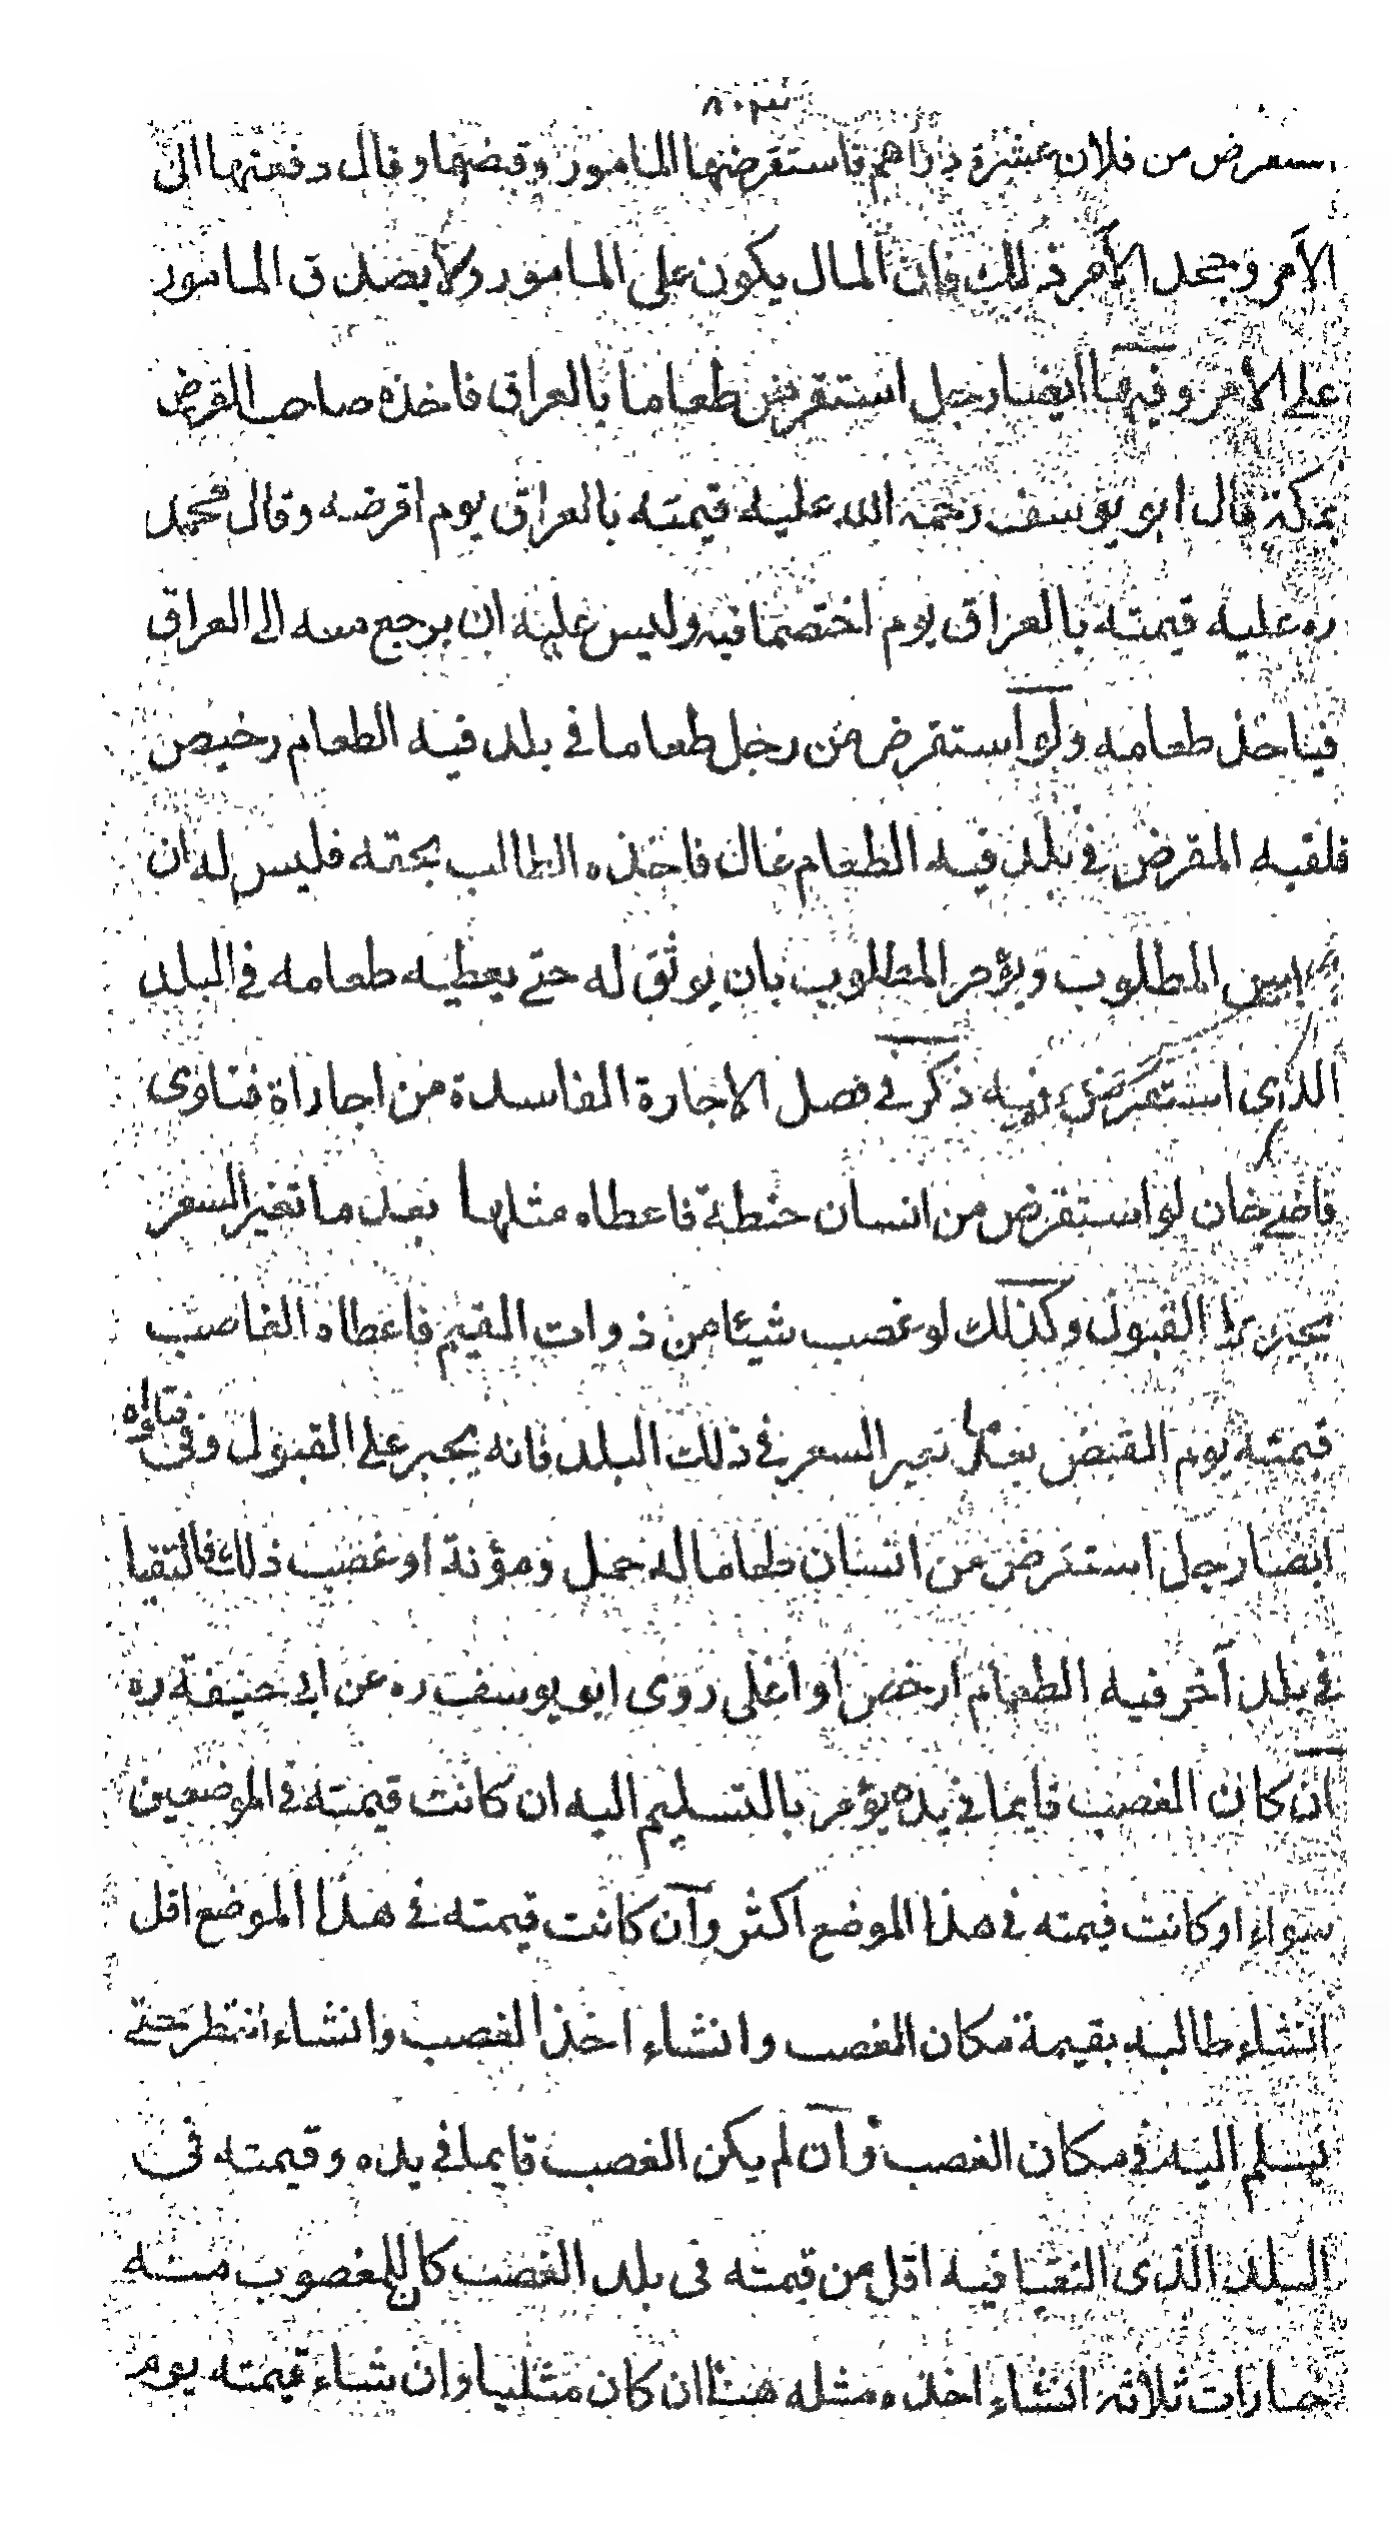 استقرض من فلان عشرة دراهم فاستقرضها المامور وقبضها وقال دفعتها الى
الآمر وجحد الآمر ذلك فان المال يكون على المامور ولا يصدق المامور
على الآمر وفيها ايضا رجل استقرض طعاما بالعراق فاخذه صاحب القرض
بمكة قال ابو يوسف رحمة الله عليه عليه قيمته بالعراق يوم اقرضه وقال محمد
ره عليه قيمته بالعراق يوم اختصما فيه وليس عليه ان يرجع معه الى العراق
فياخذ طعامه ولو استقرض من رجل طعاما في بلد فيه الطعام رخيص
فلقيه المقرض في بلد فيه الطعام غال فاخذه الطالب بحقه فليس له ان
يحبس المطلوب ويؤمر المطلوب بان يوثق له حتى يعطيه طعامه في البلد
الذي استقرض فيه ذكر في فصل الاجارة الفاسدة من اجاراة فتاوى
قاضي خان لو استقرض من انسان حنطة فاعطاه مثلها بعد ما تغير السعر
يجبر على القبول وكذلك لو غصب شيئا من ذوات القيم فاعطاه الغاصب
قيمته يوم القبض بعد ما تغير السعر في ذلك البلد فانه يجبر على القبول وفي فتاواه
ايضا رجل استقرض من انسان طعاما له حمل ومؤنة او غصب ذلك فالتقيا
في بلد آخر فيه الطعام ارخص او اغلى روى ابو يوسف ره عن ابي حنيفة ره
ان كان الغصب قايما في يده يؤمر بالتسليم اليه ان كانت قيمته في الموضعين
سواء او كانت قيمته في هذا الموضع اكثر وان كانت قيمته في هذا الموضع اقل
انشاء طالبه بقيمة مكان الغصب وانشاء اخذ الغصب وانشاء انتظر حتى
يسلم اليه في مكان الغصب وان لم يكن الغصب قايما في يده وقيمته في
البلد الذي التقيا فيه اقل من قيمته في بلد الغصب كان للمغصوب منه
خيارات ثلاثة انشاء اخذه مثله هنا ان كان مثليا وان شاء قيمته يوم